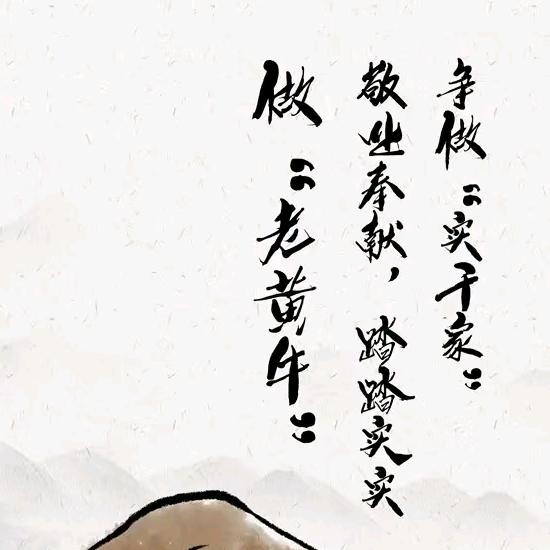 争做“实干家”
敬业奉献，踏踏实实
做“老黄牛”